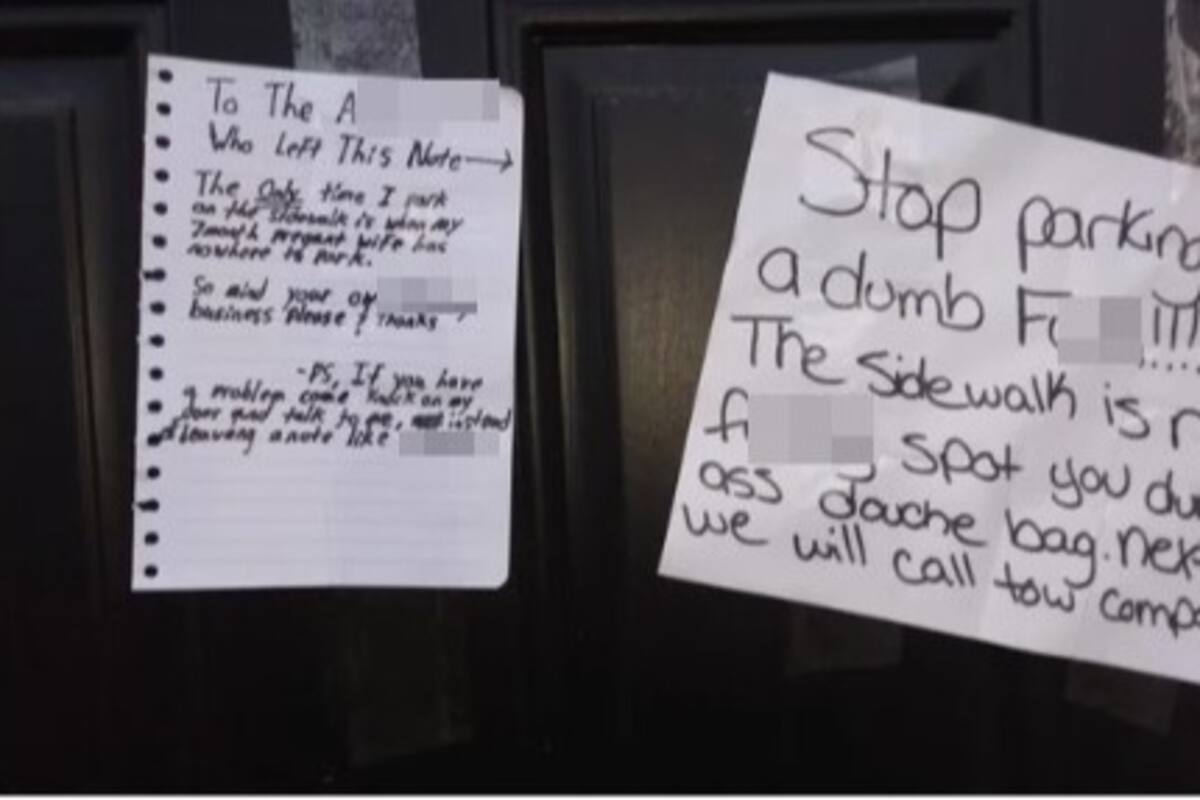 To The A
Who Left This Note→
The Only time I park
on the sidewalk is when my
7month pregant wife has
nowhere to park.
So mind your ow
business please! Thanks
-PS, If you have
a problem come knock on my
door and talk to me, instead
leaving a note like
Stop parking
a dumb Fu
The Sidewalk is n
f spot you du
ass douche bag. nex
we will call tow compa